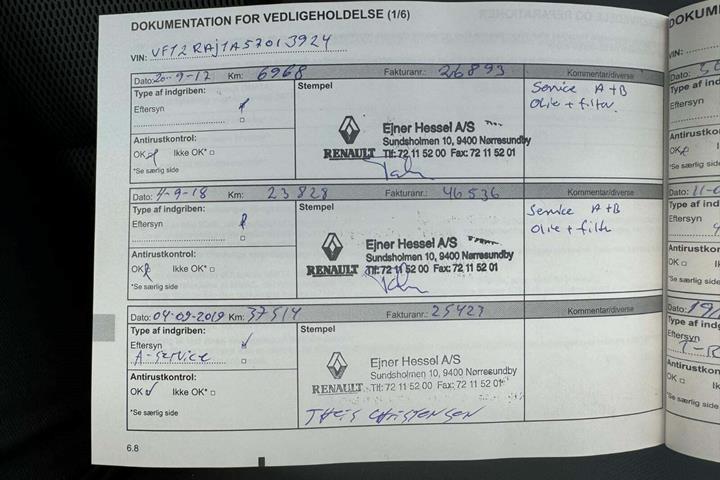 DOKUMENTATION FOR VEDLIGEHOLDELSE (1/6)
VIN: VF12RAJ1A57013924
Dato: 20-9-17 Km: 6968 Fakturanr.: 26893 Kommentar/diverse
Type af indgriben: Stempel Service A+B
Eftersyn Olie + filter.
Ejner Hessel A/S
Antirustkontrol: Sundsholmen 10, 9400 Nørresundby
OK Ikke OK* RENAULT Tlf: 72 11 52 00 Fax: 72 11 52 01
*Se særlig side
Dato: 4-9-18 Km: 23828 Fakturanr.: 46536 Kommentar/diverse
Type af indgriben: Stempel Service A+B
Eftersyn Olie + filter
Ejner Hessel A/S
Antirustkontrol: Sundsholmen 10, 9400 Nørresundby
OK Ikke OK* RENAULT Tlf: 72 11 52 00 Fax: 72 11 52 01
*Se særlig side
Dato: 04-09-2019 Km: 37514 Fakturanr.: 25423 Kommentar/diverse
Type af indgriben: Stempel
Eftersyn
A-service Ejner Hessel A/S
Antirustkontrol: Sundsholmen 10, 9400 Nørresundby
OK Ikke OK* RENAULT Tlf: 72 11 52 00 Fax: 72 11 52 01
*Se særlig side THEIS CHRISTENSEN
6.8
DOKUM
VIN:
Dato:
Type af
Eftersyn
Antirustk
OK
*Se særlig
Dato: 11-0
Type af
Eftersyn
Antirustkon
OK
*Se særlig sid
Dato: 19
Type af indg
Eftersyn
Antirustkon
OK
*Se særlig side